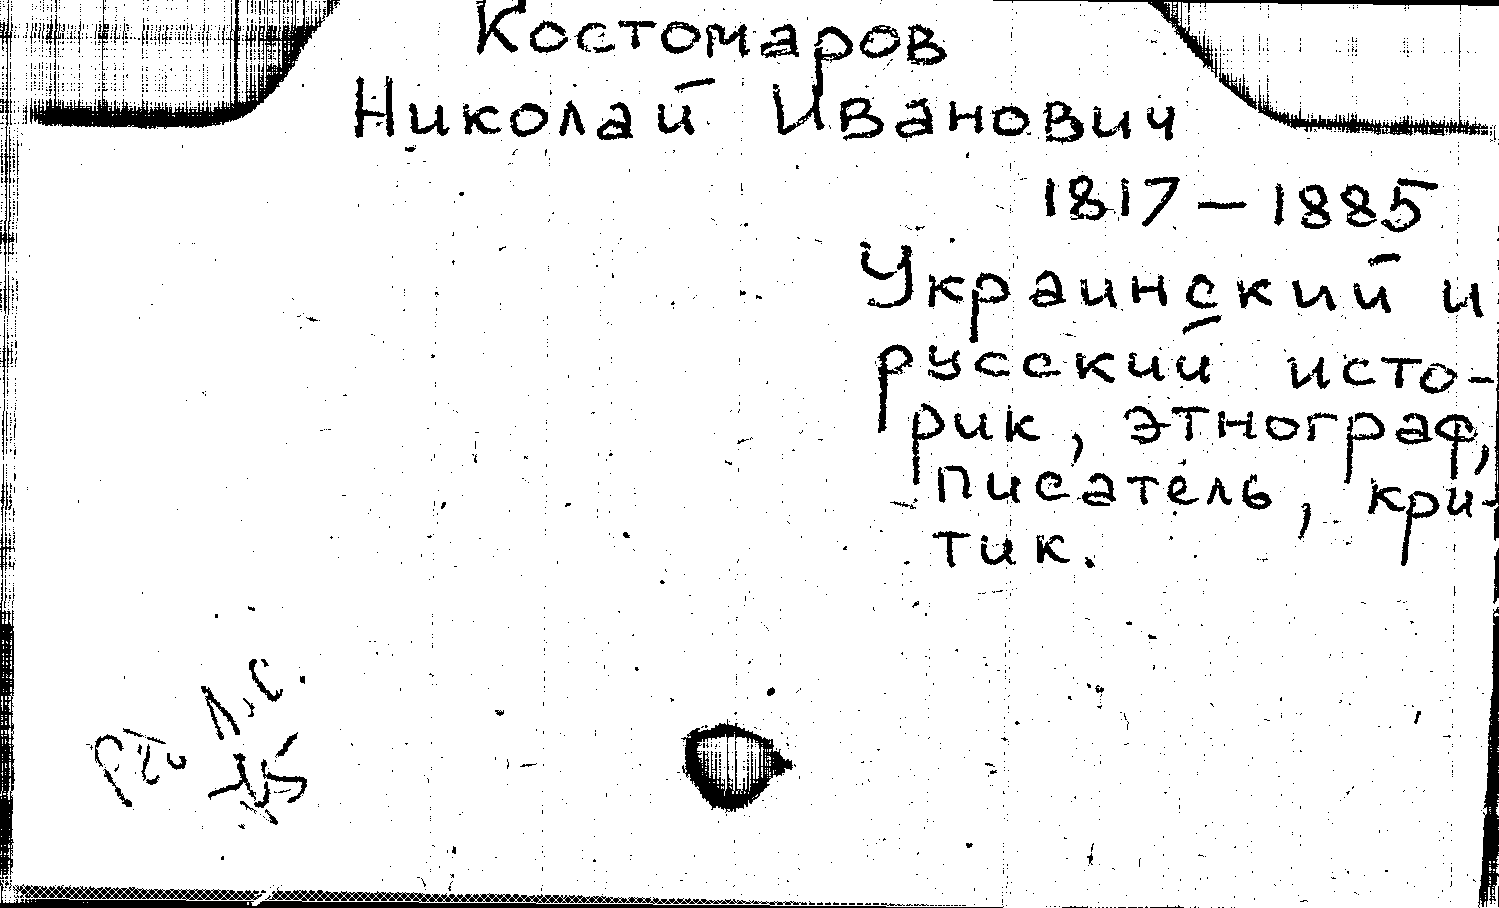 Костомаров
Николай Иванович
1817 – 1885
Украинский и
русский исто-
рик, этнограф,
писатель, кри-
тик.